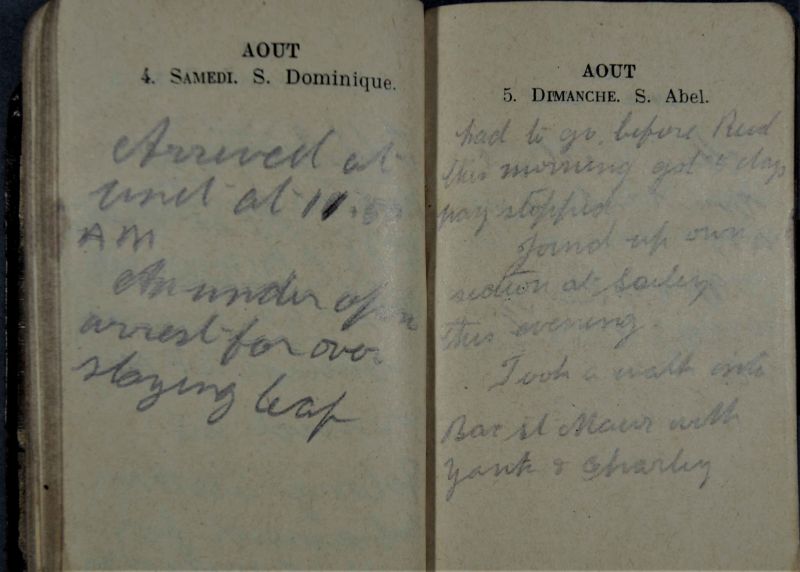 AOUT
4. SAMEDI. S. Dominique.
Arrived at
unit at 11.
AM
Am under open
arrest for over
staying leaf
AOUT
5. DIMANCHE. S. Abel.
had to go before Reid
this morning got 8 days
pay stopped
Joind up own
section at Sailey
this evening.
Took a walk into
Bac st Maur with
Yank & Charley